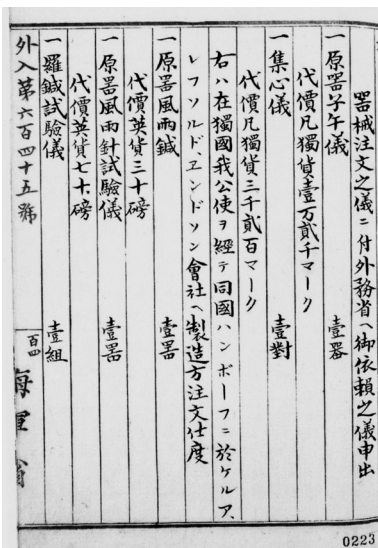 器械注文之儀ニ付外務省ヘ御依賴之儀申出
一原器子午儀 壹器
代價凡獨貨壹万貳千マーク
一集心儀 壹對
代價凡獨貨三千貳百マーク
右ハ在獨國我公使ヲ經テ同國ハンボーフニ於ケルア、
レフソルド、エンドソン會社ヘ製造方注文仕度
一原器風雨鍼 壹器
代價英貨三十磅
一原器風雨針試驗儀 壹器
代價英貨七十磅
一羅鍼試驗儀 壹組
外入第六百四十五號
百四
海軍省
0223